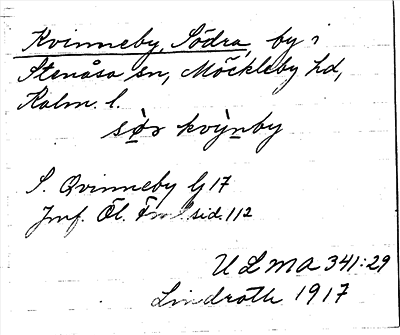 Kvinneby, Södra, by i
Stenåsa sn, Möckleby hd,
Kalm. l.
sø̀r kvỳnby
S. Qvinneby Gj 17
Jmf. Öl. sid. 112
ULMA 341:29
Lindroth 1917